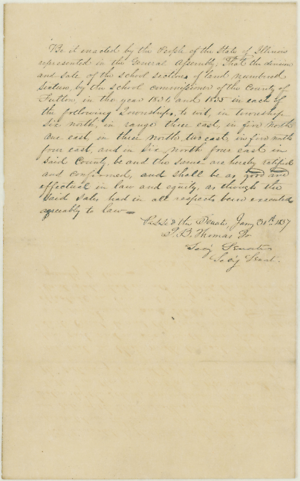 Be it enacted by the People of the State of Illinois
represented in the General Assembly, That the division
and sale of the school sections of land numbered
sixteen, by the School commissioner of the County of
Fulton, in the year 1834 and 1835 in each of
the following Townships, to wit, in township
six north, in range three east, in five north
one east, in three north, two east, in five north
four east, and in six, north four east in
said County be and the same are hereby ratified
and confirmed, and shall be as good and
effectual in law and equity, as though the
said sales had in all respects been executed
agreeably to law—
the Senate, Jany 30th 1837
J. B. Thomas Jr
Secy Senate
Secy Senat.